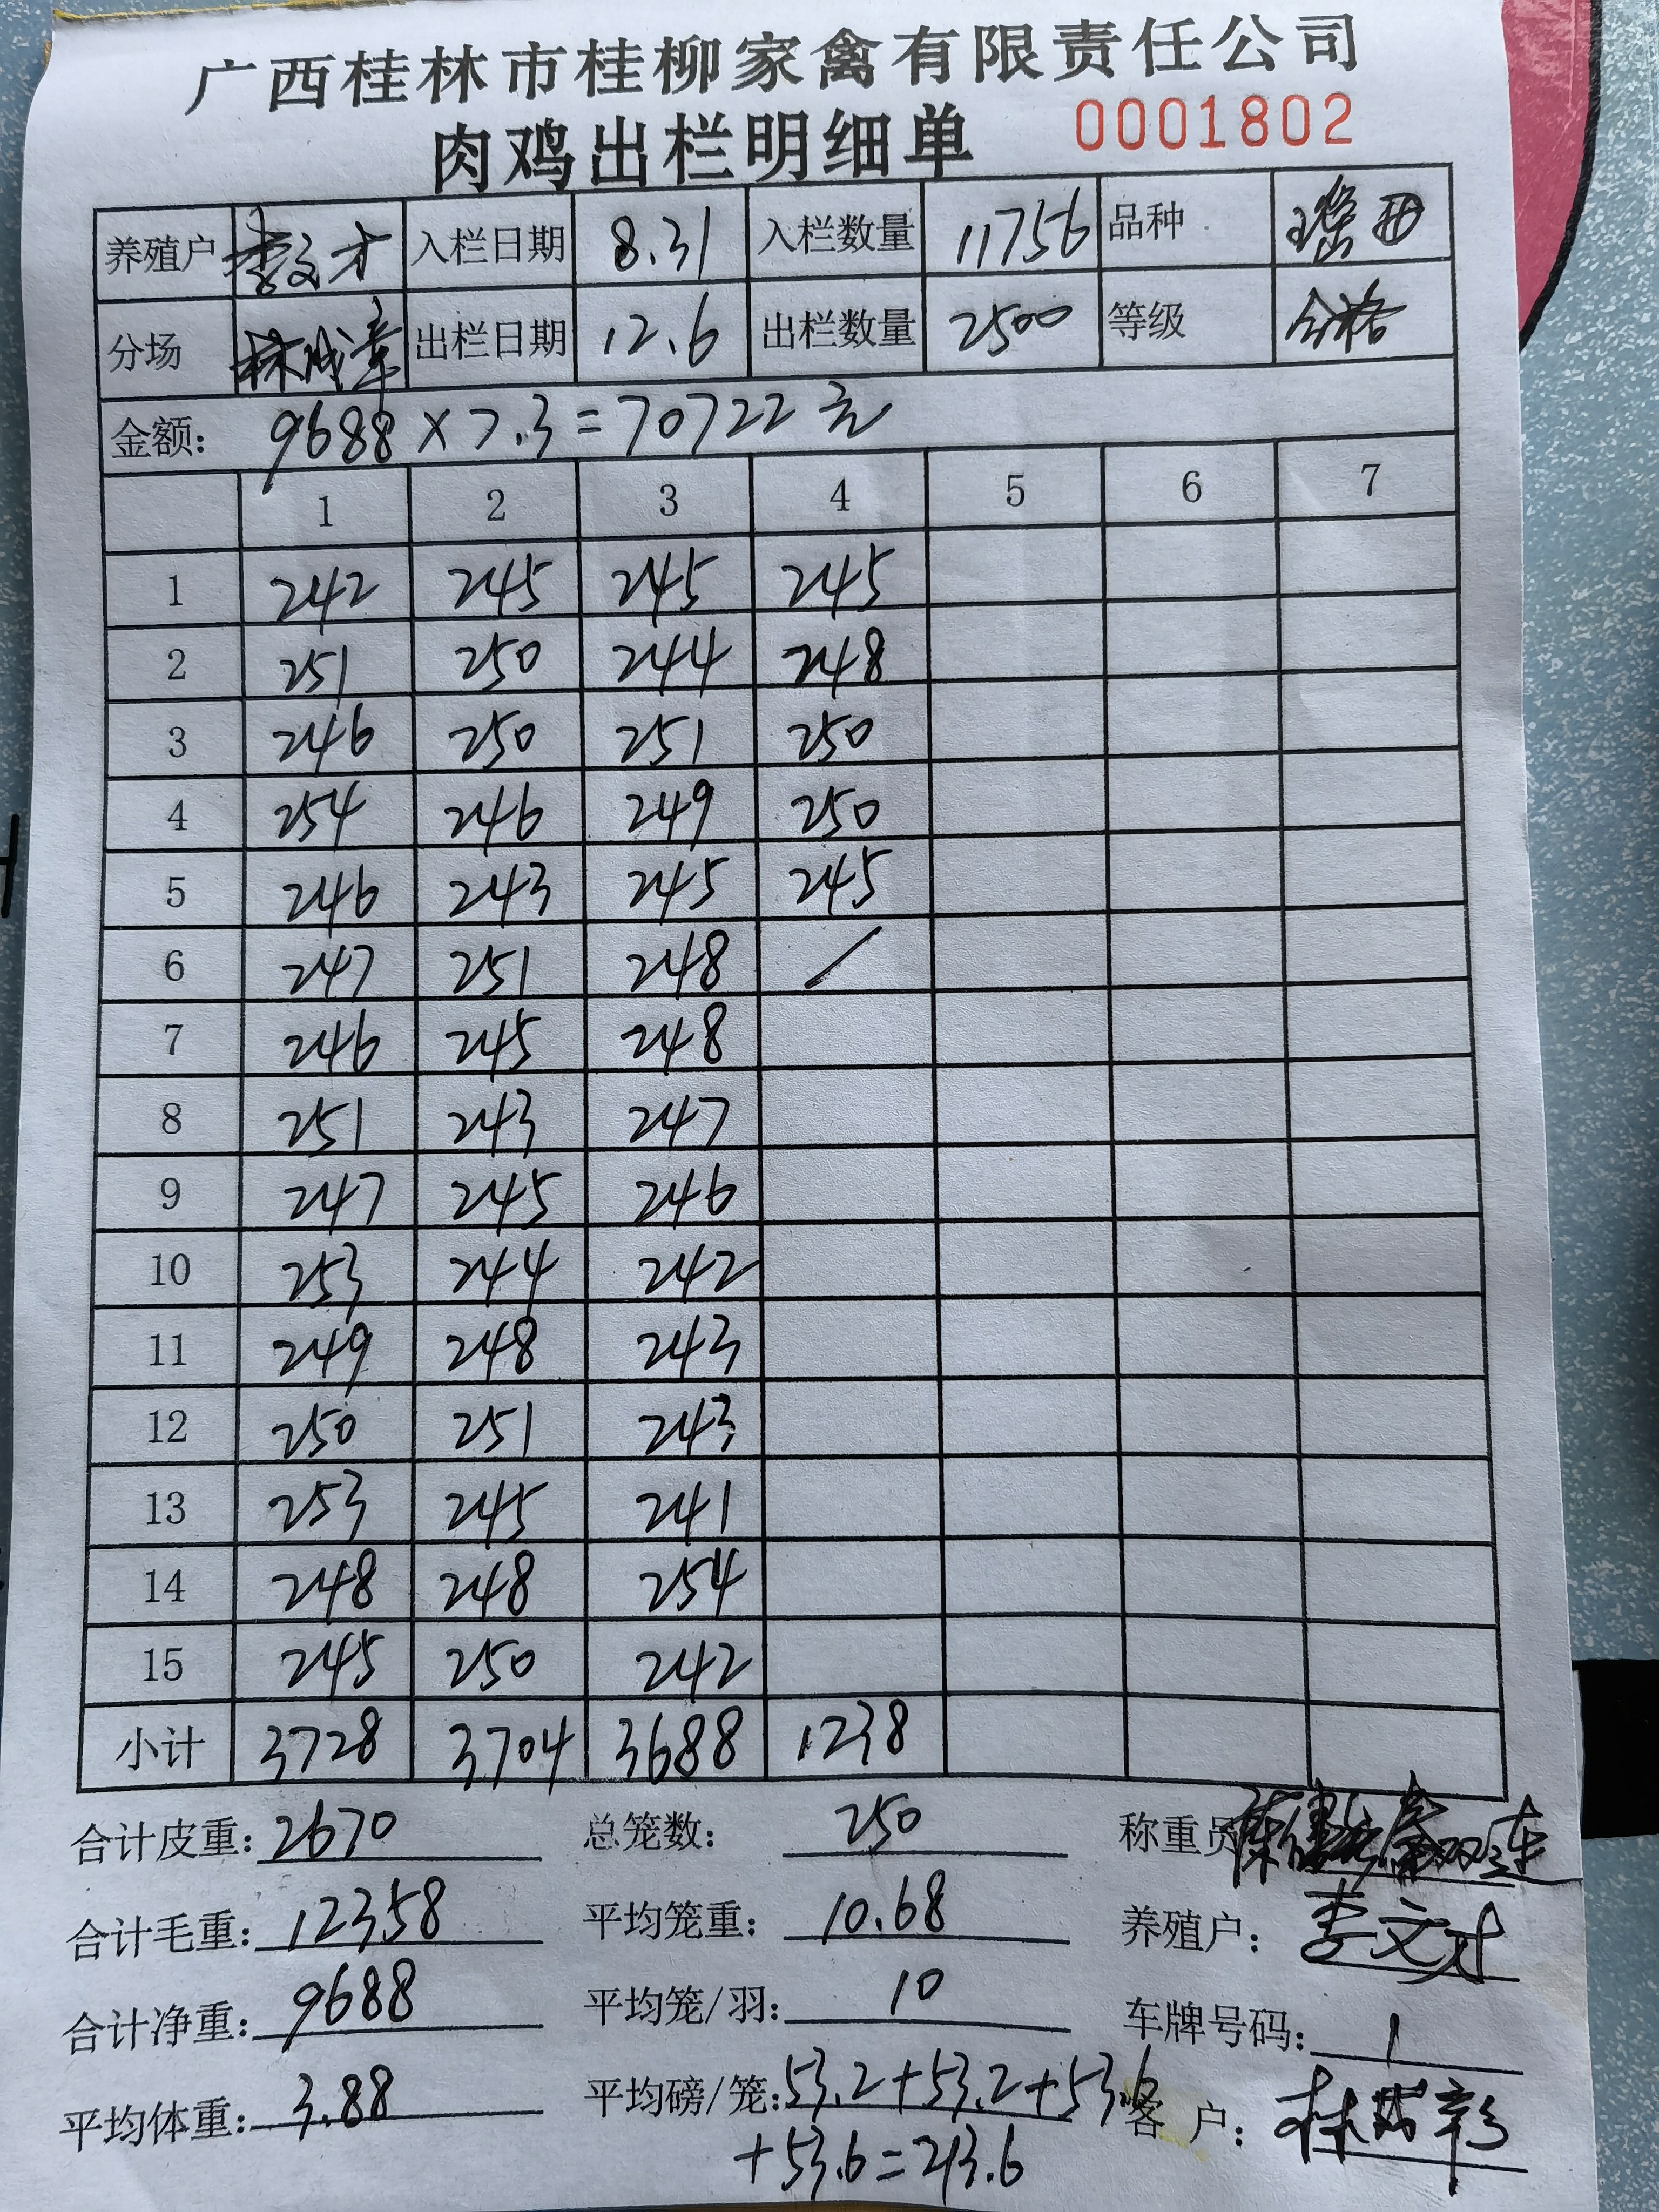 广西桂林市桂柳家禽有限责任公司
肉鸡出栏明细单 0001802
养殖户 李文才 入栏日期 8.31 入栏数量 11756 品种 瑶西
分场 林成章 出栏日期 12.6 出栏数量 2500 等级 合格
金额: 9688×7.3=70722元
1 2 3 4 5 6 7
1 242 245 245 245
2 251 250 244 248
3 246 250 251 250
4 254 246 249 250
5 246 243 245 245
6 247 251 248 /
7 246 245 248
8 251 243 247
9 247 245 246
10 253 244 242
11 249 248 243
12 250 251 243
13 253 245 241
14 248 248 254
15 245 250 242
小计 3728 3704 3688 1238
合计皮重: 2670 总笼数: 250 称重员
合计毛重: 12358 平均笼重: 10.68 养殖户: 李文才
合计净重: 9688 平均笼/羽: 10 车牌号码: 1
平均体重: 3.88 平均磅/笼: 53.2+53.2+53.6 客户:
+53.6=213.6